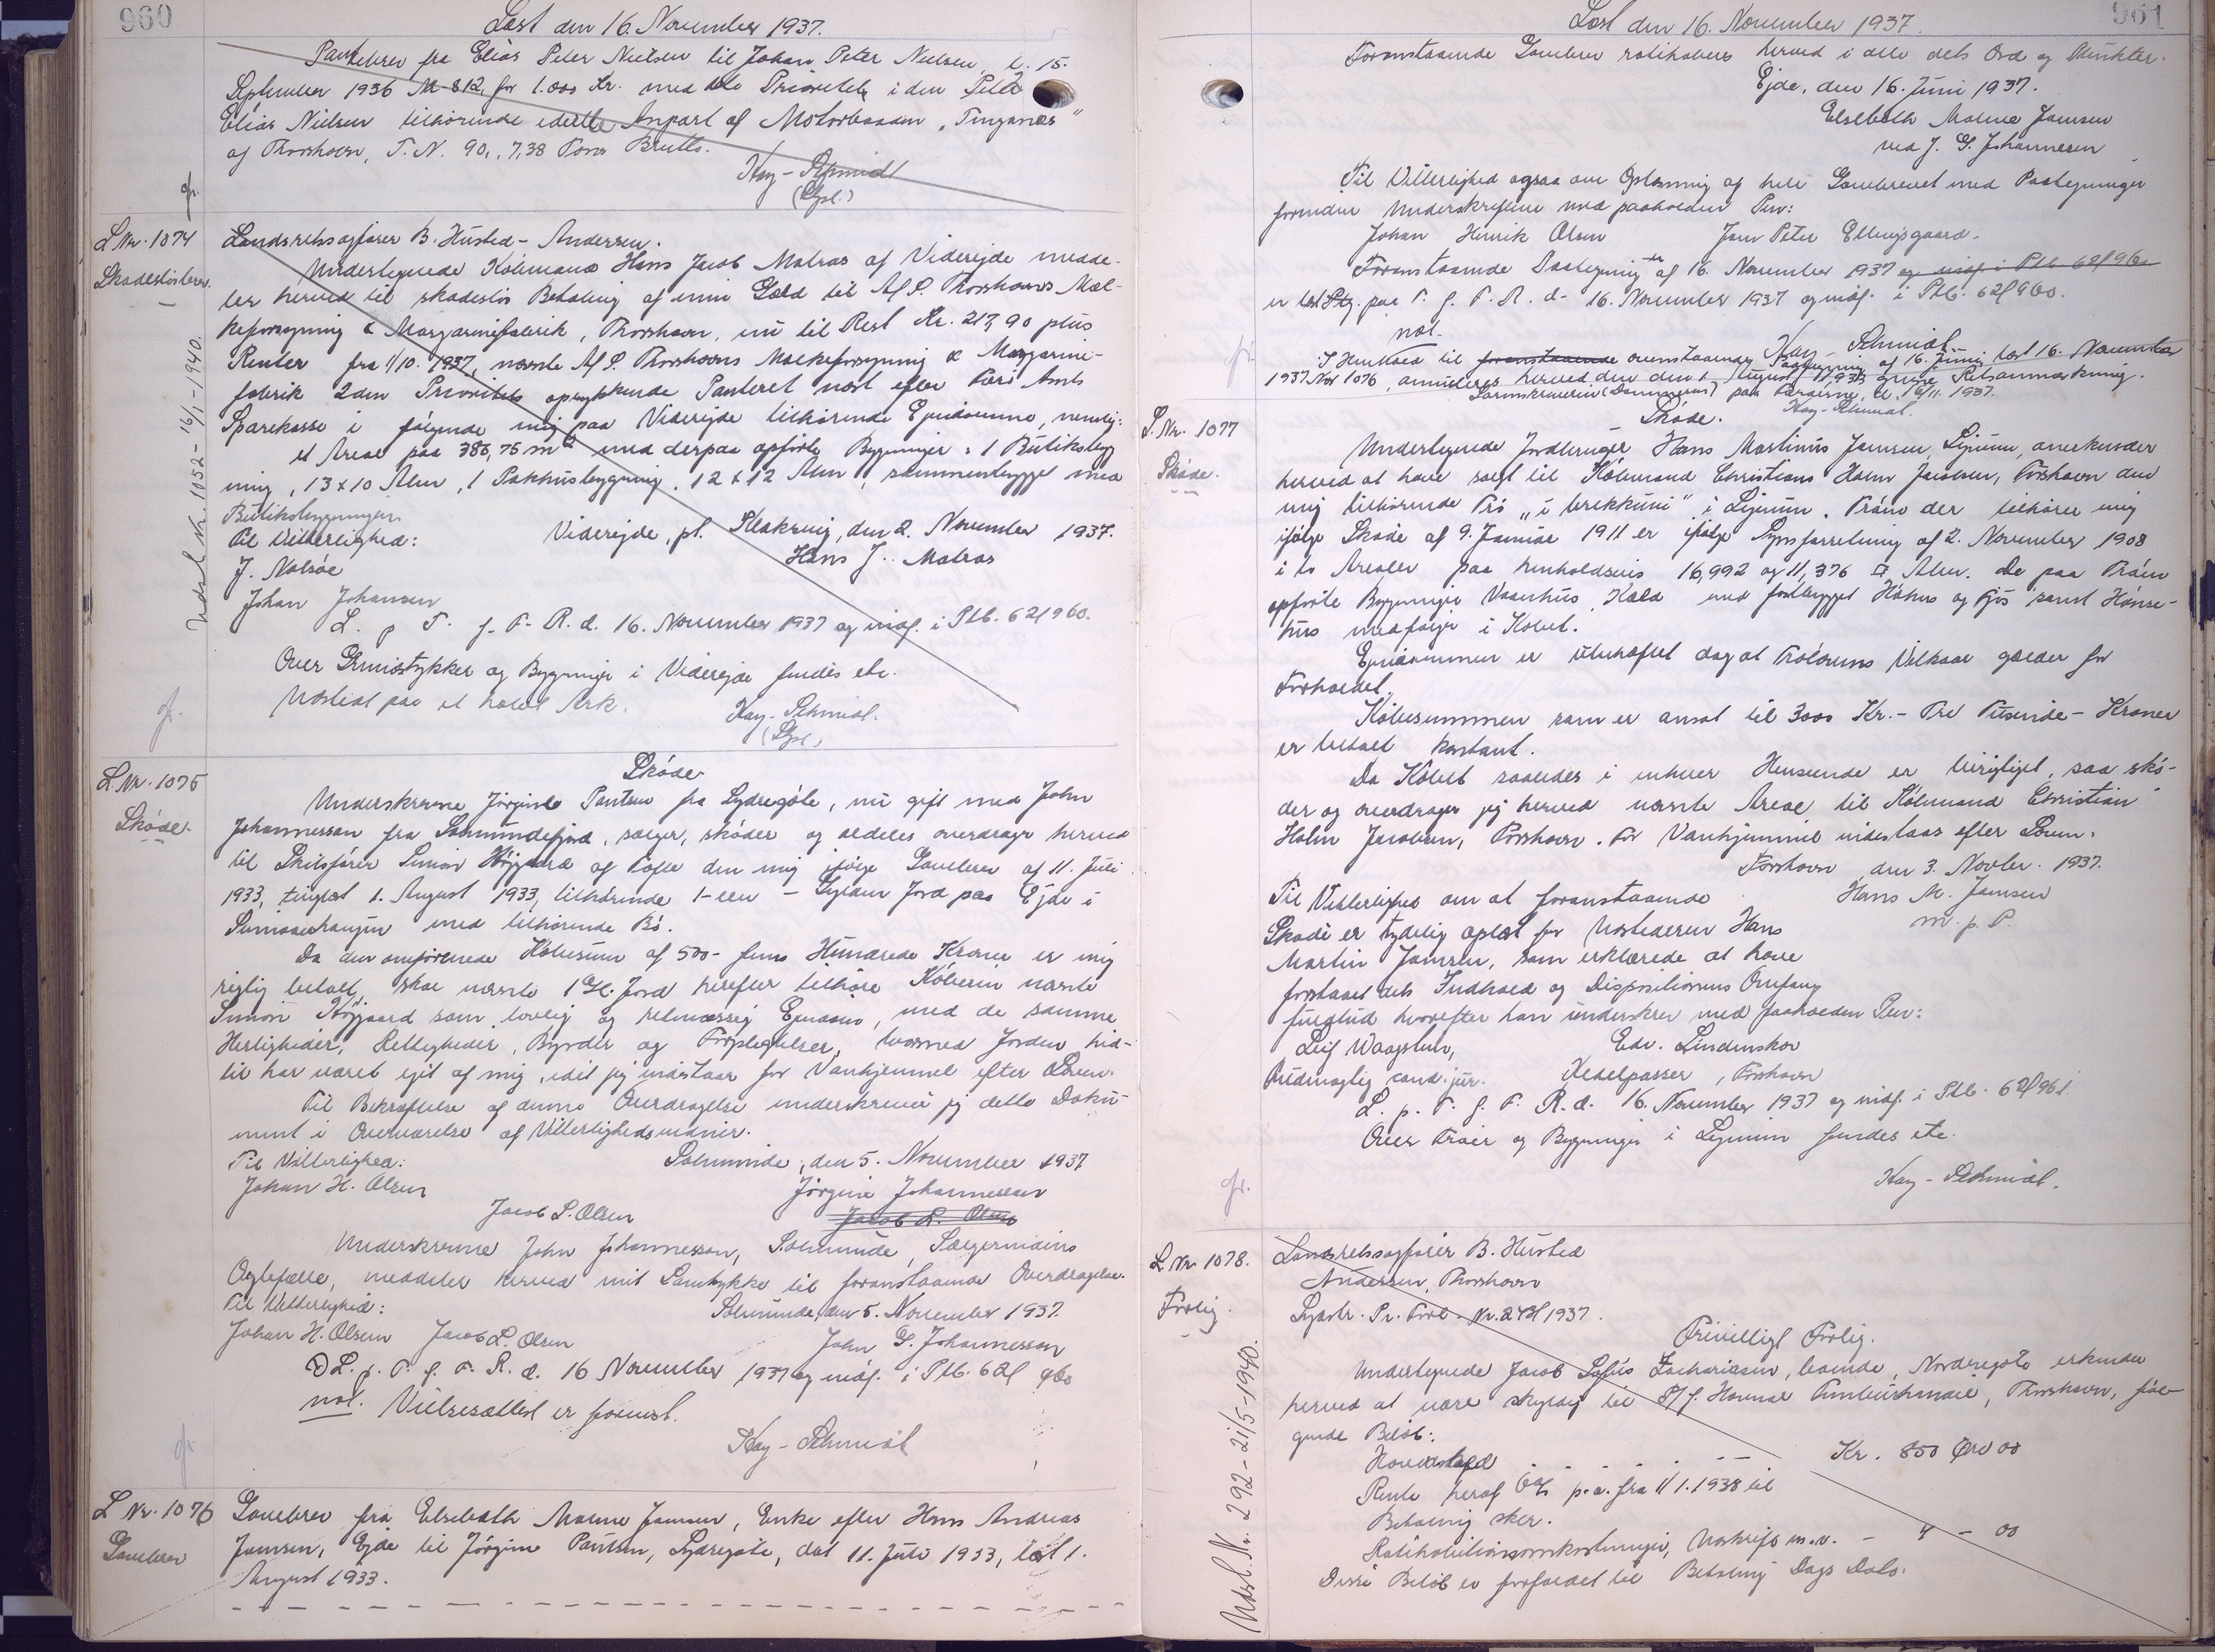 960
Læst den 16. November 1937.
Pantebrev fra Elias Peter Nielsen til Johan Peter Nielsen, d. 15.
September 1936 No 812, for 1.000 Kr. med Prioritet i den Peter
Elias Nielsen tilhørende ideelle Anpart af Motorbaaden "Tinganæs"
af Thorshavn, T.N. 90, 7,38 Tons Brutto.
Kay-Schmidt
(Gpl.)
L Nr. 1074
Skadesløsbrev.
Udsl. Nr. 1052 - 16/1 - 1940.
Landsretssagfører B. Husted-Andersen.
Undertegnede Købmand Hans Jacob Matras af Viderejde medde-
ler herved til skadesløs Betaling af min Gæld til A/S. Thorshavns Mæl-
keforsyning & Margarinefabrik, Thorshavn, nu til Rest Kr. 217,90 plus
Renter fra 1/10. 1937, nævnte A/S. Thorshavns Mælkeforsyning & Margarine-
fabrik 2den Prioritets oprykkende Panteret næst efter Færø Amts
Sparekasse i følgende mig paa Viderejde tilhørende Ejendomme, nemlig:
et Areal paa 385,75 m2 med derpaa opførte Bygninger: 1 Butiksbyg
ning, 13 x 10 Alen, 1 Pakhusbygning, 12 x 12 Alen, sammenbygget med
Butiksbygningen.
Til Vitterlighed: Viderejde, pt. Klaksvig, den 2. November 1937.
J. Nolsøe Hans J. Matras
Johan Johansen
L. p T. f. F. R. d. 16. November 1937 og indf. i Ptb. 62f 960.
Over Grundstykker og Bygninger i Viderejde findes etc.
Udstedt paa et halvt Ark.
Kay-Schmidt.
(Gpl.)
L Nr. 1075
Skøde.
Skøde
Underskrevne Jørgine Poulsen fra Sydregøte, nu gift med John
Johannesson fra Solmundefjord, sælger, skøder og aldeles overdrager herved
til Skibsfører Simon Højgaard af Tofte den mig ifølge Gavebrev af 11. Juli
1933, tinglæst 1. August 1933, tilhørende 1-een - Gylden Jord paa Ejde i
med tilhørende Bø.
Da den omførende Købesum af 500- fem Hundrede Kroner er mig
rigtig betalt, skal nævnte 1 Gl. Jord herefter tilhøre Køberen nævnte
Simon Højgaard som lovlig og retmæssig Ejendom, med de samme
Herligheder, Rettigheder, Byrder og Forpligtelser, hvormed Jorden hid-
til har været ejet af mig, idet jeg indestaar for Vanhjemmel efter Loven.
Til Bekræftelse af denne Overdragelse underskriver jeg dette Doku-
ment i Overværelse af Vitterlighedsvidner.
Til Vitterlighed: Solmunde, den 5. November 1937
Johan H. Olsen Jørgine Johannessen
Jacob L. Olsen Jacob L. Olsen
Underskrevne John Johannesson, Solmunde, Sælgerindens
Ægtefælle, meddeler herved mit Samtykke til foranstaaende Overdragelse.
Til Vitterlighed: Solmunde, den 5. November 1937.
Johan H. Olsen Jacob L. Olsen John G. Johannesson
L. p. T. f. F. R. d. 16 November 1937 og indf. i Ptb. 62f 960
not. Vielsesattest er forevist.
Kay-Schmidt
L Nr. 1076
Gavebrev
Gavebrev fra Elsebeth Malene Jensen, Enke efter Hans Andreas
Jensen, Ejde til Jørgine Poulsen, Sydregøte, dat 11. Juli 1933, læst 1.
August 1933.
961
Læst den 16. November 1937.
Foranstaaende Gavebrev ratihaberes herved i alle dets Ord og Punkter.
Ejde, den 16. Juni 1937.
Elsebeth Malene Jensen
ved J. G. Johannesen
Til Vitterlighed ogsaa om Oplæsning af hele Gavebrevet med Paategninger
forinden Underskriften med paaholden Pen:
Johan Henrik Olsen Jens Peter Ellingsgaard.
Foranstaaende Paategning af 16. November 1937 og indf. i Ptb. 62f 960
er læst paa T. f. F. R. d. 16. November 1937 og indf. i Ptb. 62f 960.
not.
Kay-Schmidt
I Henhold til foranstaaende ovenstaaende Paategning af 16. Juni, læst 16. November
1937 Nr 1076, annulleres herved den den 1 August 1933 givne Retsanmærkning.
Sorenskriveren (Dommeren) paa Færøerne, d. 16/11. 1937.
Kay-Schmidt.
L. Nr. 1077
Skøde.
Skøde.
Undertegnede Jordbruger Hans Martinus Jensen, anerkender
herved at have solgt til Købmand Christians Holm Jacobsen, Torshavn den
mig tilhørende Trø "i brekkuni" i. Trøen der tilhører mig
ifølge Skøde af 9. Januar 1911 er ifølge Synsforretning af 2. November 1908
i to Arealer paa henholdsvis 16,992 og 11,376 □ Alen. De paa Trøen
opførte Bygninger Vaanhus, Kæld med fastbygget Høhus og Fjós samt Hønse-
hus medfølger i Købet.
Ejendommen er ubehæftet dog at Trølovens Vilkaar gælder for
Forholdet.
Købesummen som er ansat til 3000 Kr. - Tre Tusinde - Kroner
er betalt kontant.
Da Købet saaledes i enhver Henseende er berigtiget, saa skø-
der og overdrager jeg herved nævnte Areal til Købmand Christian
Holm Jacobsen, Torshavn. For Vanhjemmel indestaas efter Loven.
Torshavn, den 3. Novbr. 1937.
Til Vitterlighed om at foranstaaende Hans M. Jensen
Skøde er tydelig oplæst for Udstederen Hans m. p. P.
Martin Jensen, som erklærede at have
forstaaet dets Indhold og Dispositionens Omfang
fuldtud hvorefter han underskrev med paaholden Pen:
Leif Waagstein, Edv. Lindenskov
Fuldmægtig cand. jur. Kedelpasser, Torshavn
L. p. T. f. F. R. d. 16. November 1937 og indf. i Ptb. 62f 961.
Over Trøer og Bygninger i findes etc.
Kay-Schmidt.
L Nr. 1078.
Forlig.
Udsl. Nr. 292 - 21/5-1940.
Landsretssagfører B. Husted
Andersen, Thorshavn
Nr. 243/1937.
Privilligt Forlig.
Undertegnede Jacob Sofus Zachariasen, boende, Nordregøte erkender
herved at være skyldig til Timburhandil, Thorshavn, føl-
gende Beløb:
Hovedstol Kr. 850 Øre 00
Rente heraf 6% p.a. fra 1/1.1938 til
Betaling sker.
Ratihabitionsomkostninger, Udskrift m.v. - 4 - 00
Disse Beløb er forfaldet til Betaling Dags Dato.